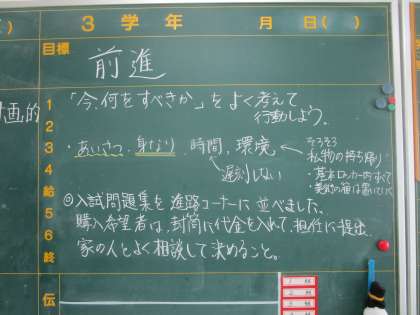 3 学年 月 日( )
目標 前進
1 「今、何をすべきか」をよく考えて
行動しよう。
2
3 ・あいさつ、身なり、時間、環境 ← そろそろ
私物の持ち帰り
遅刻しない
・基本ロッカー内すべて
4
5 ◎入試問題集を進路コーナーに並べました。
6 購入希望者は、封筒に代金を入れて、担任に提出。
終 家の人とよく相談して決めること。
伝